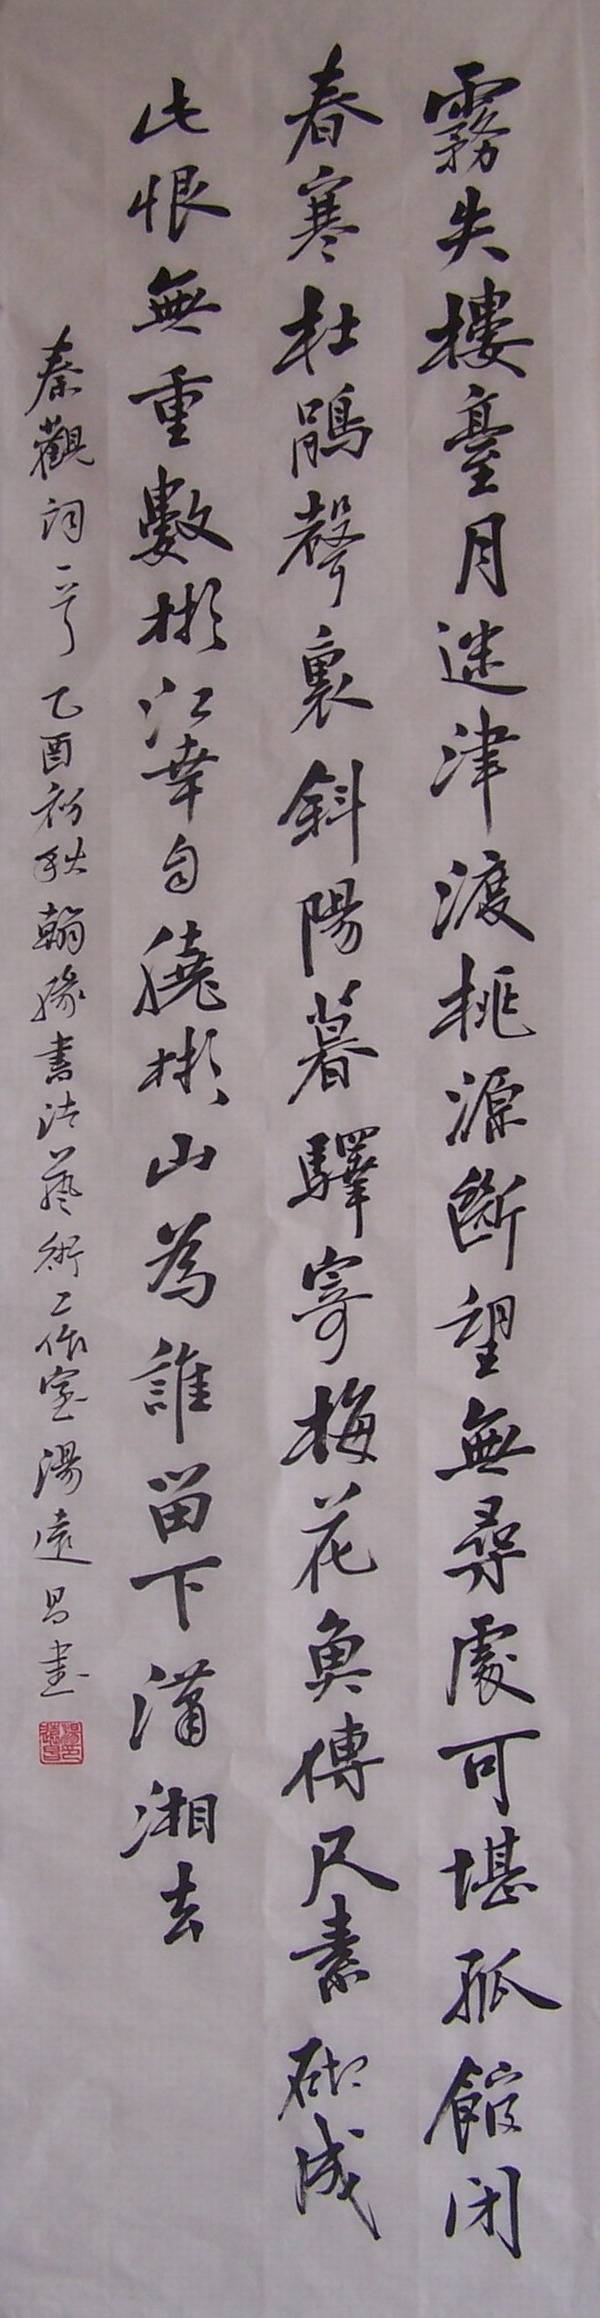 霧失樓臺月迷津渡桃源斷望無尋處可堪孤館閉
春寒杜鵑聲裏斜陽暮驛寄梅花魚傳尺素砌成
此恨無重數彬江幸自繞彬山為誰留下瀟湘去
秦觀詞一首 乙酉初秋翰緣書法藝術工作室湯遠昌書